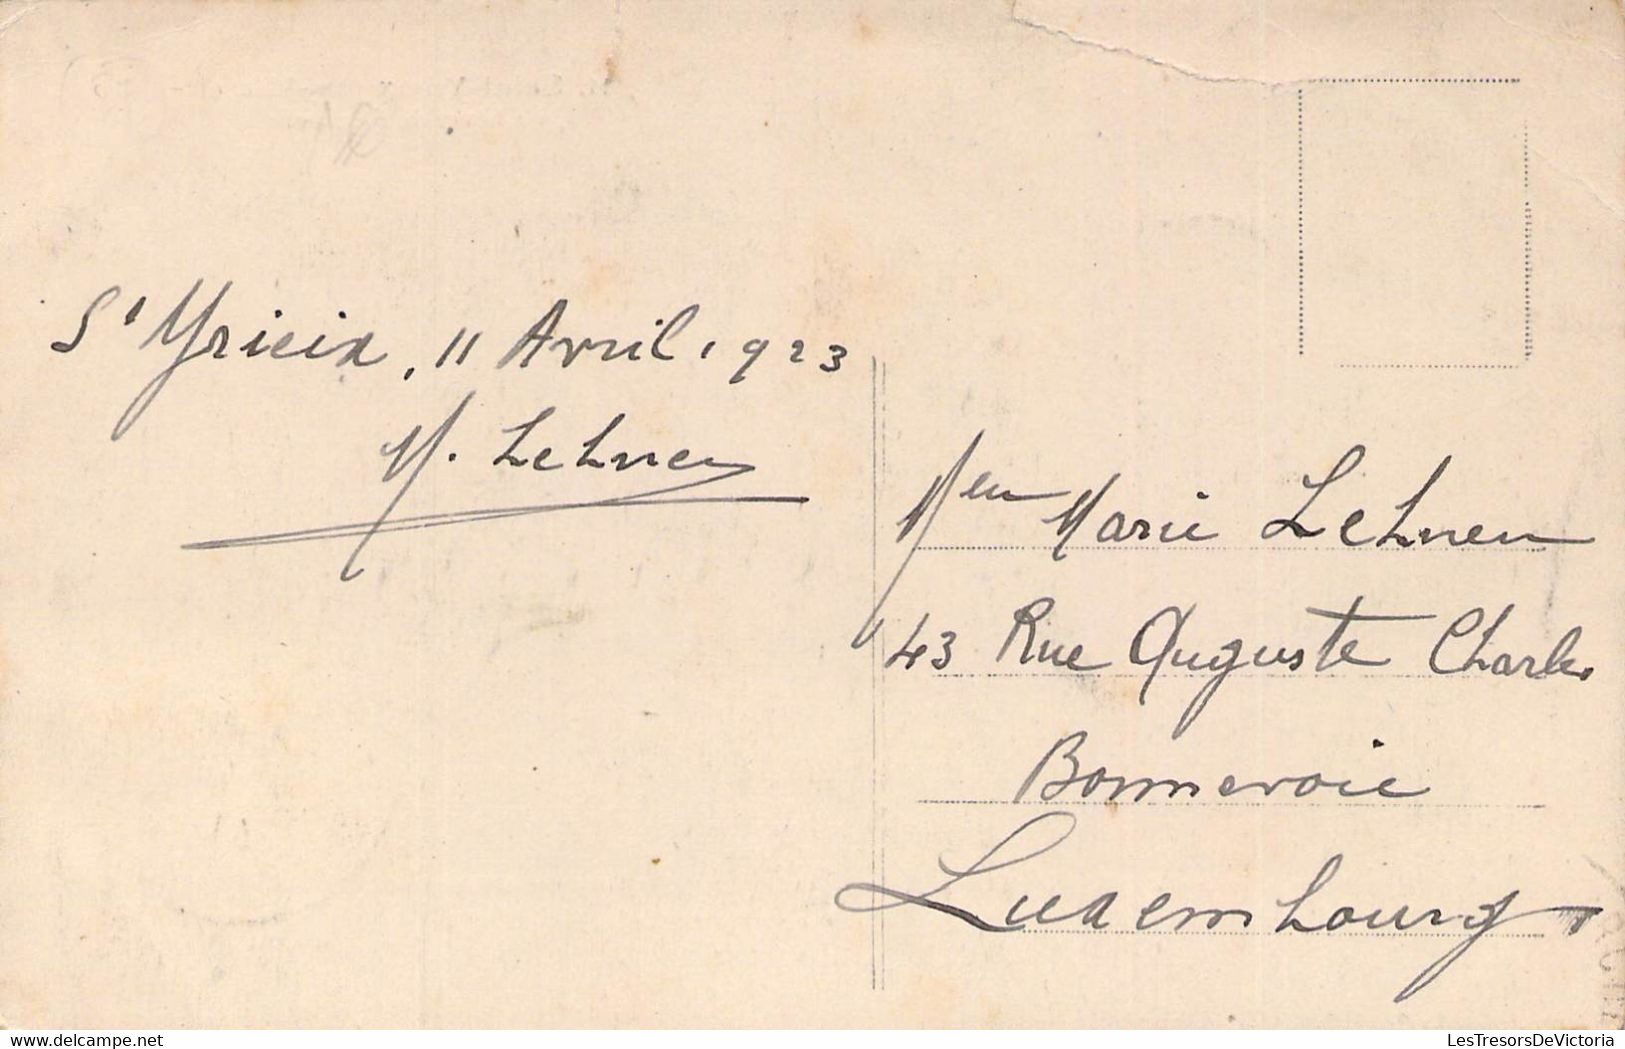 St Yrieix, 11 Avril 1923
M. Lehnen
Men Marie Lehnen
43 Rue Auguste Charles
Bonnevoie
Luxembourg
LesTresorsDeVictoria
www.delcampe.net